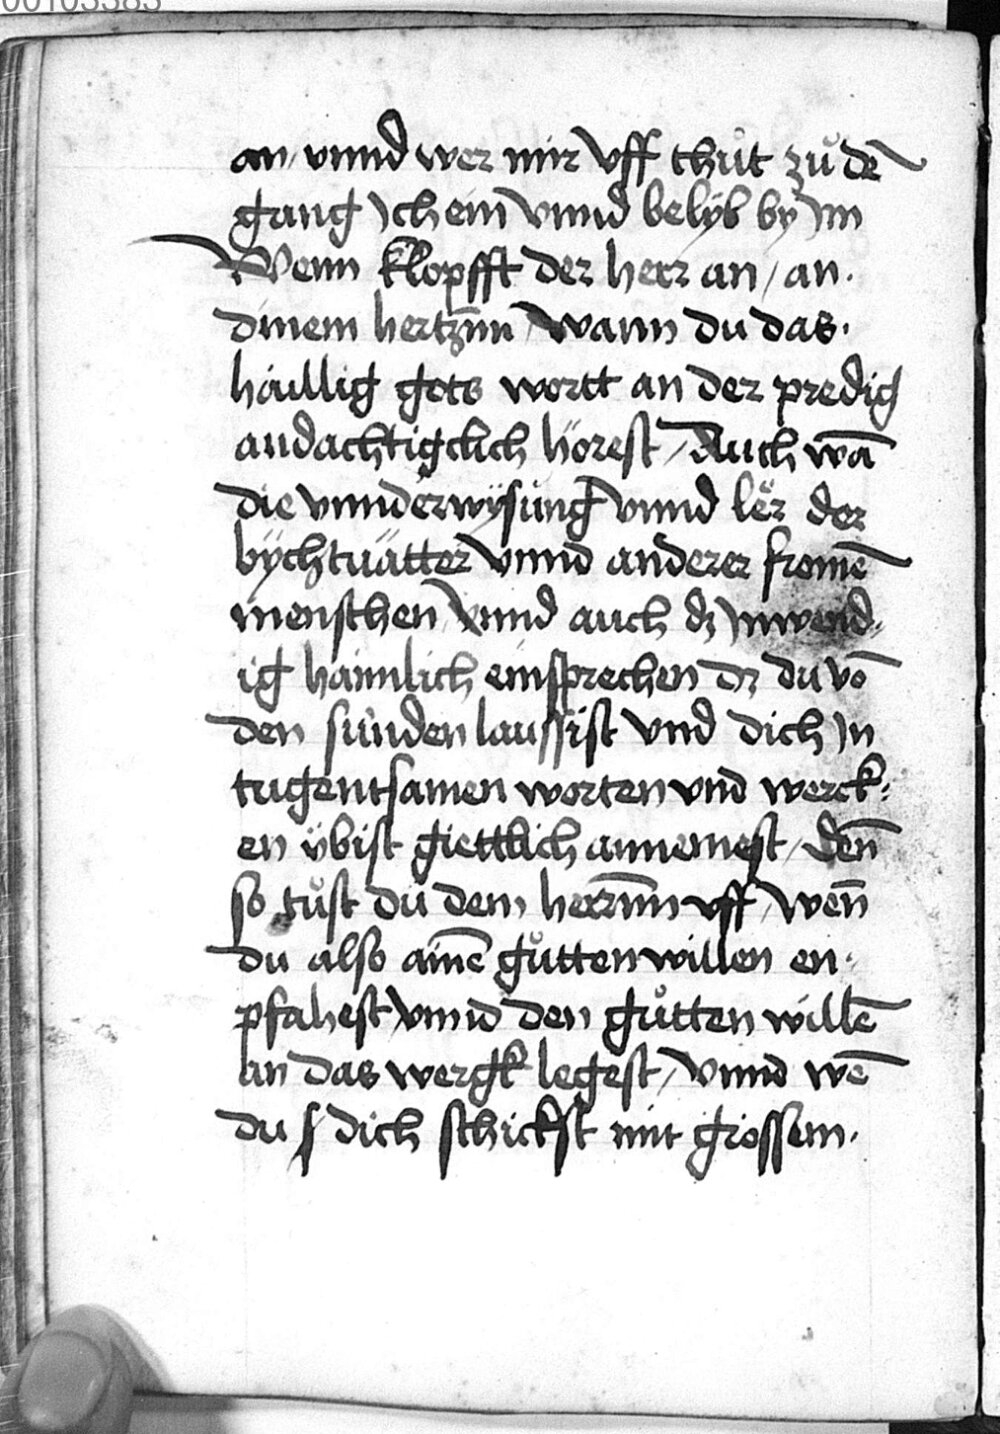 00103383
an / vnnd wer mir vff thůt zů dē
gang jch ein vnnd belÿb bÿ jm
Wenn klopfft der herr an / an.
dinem hertzn̄n / wann du das.
häillig gots wortt an der predig
andachtigclich hörest / Auch wā
die vnnderwÿsung vnnd lër der
bÿchtuätter vnnd anderer fromē
menschen / vnnd auch dz jnwend.
ig haimlich einsprechen dz du vō
den sünden laussist vnd dich jn
tugentsamen worten vnd werck.
en ÿbist giettlich annemest / den̄
so tůst du dem herrn̄n vff / wen̄
du also ainē gůtten willen en.
pfahest vnnd den gůtten willē
an das wergk legest / vnnd wē
du dich schickst mit grossem.